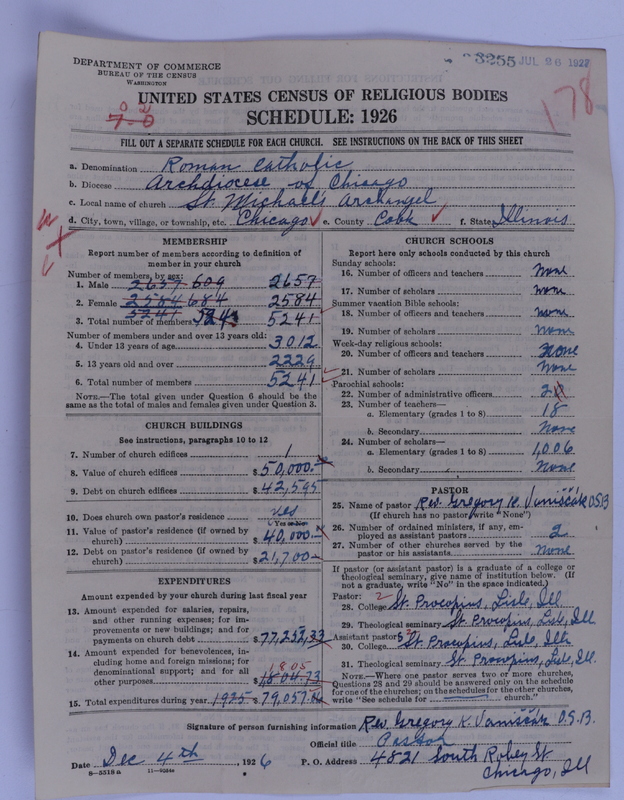 DEPARTMENT OF COMMERCE
BUREAU OF THE CENSUS
WASHINGTON
3255 JUL 26 1927
178
UNITED STATES CENSUS OF RELIGIOUS BODIES
SCHEDULE: 1926
FILL OUT A SEPARATE SCHEDULE FOR EACH CHURCH. SEE INSTRUCTIONS ON THE BACK OF THIS SHEET
a. Denomination Roman Catholic
b. Diocese Archdiocese of Chicago
c. Local name of church St. Michaels Archangel
d. City, town, village, or township, etc. Chicago e. County Cook f. State Illinois
MEMBERSHIP
Report number of members according to definition of
member in your church
Number of members, by sex:
1. Male 2657 609 2657
2. Female 2584 684 2584
3. Total number of members 5241 5241
Number of members under and over 13 years old:
4. Under 13 years of age 3012
5. 13 years old and over 2229
6. Total number of members 5241
NOTE.—The total given under Question 6 should be the
same as the total of males and females given under Question 3.
CHURCH BUILDINGS
See instructions, paragraphs 10 to 12
7. Number of church edifices 1
8. Value of church edifices $50,000.
9. Debt on church edifices $42,595
10. Does church own pastor's residence yes
Yes or No
11. Value of pastor's residence (if owned by
church) $40,000
12. Debt on pastor's residence (if owned by
church) $21,700
EXPENDITURES
Amount expended by your church during last fiscal year
13. Amount expended for salaries, repairs,
and other running expenses; for im-
provements or new buildings; and for
payments on church debt $77,252,33
14. Amount expended for benevolences, in-
cluding home and foreign missions; for
denominational support; and for all
other purposes 1805 $1804.73
15. Total expenditures during year 1925 $79,057
CHURCH SCHOOLS
Report here only schools conducted by this church
Sunday schools:
16. Number of officers and teachers None
17. Number of scholars None
Summer vacation Bible schools:
18. Number of officers and teachers none
19. Number of scholars none
Week-day religious schools:
20. Number of officers and teachers none
21. Number of scholars None
Parochial schools:
22. Number of administrative officers
23. Number of teachers—
a. Elementary (grades 1 to 8) 18
b. Secondary None
24. Number of scholars—
a. Elementary (grades 1 to 8) 1,006
b. Secondary None
PASTOR
25. Name of pastor Rev. Gregory K. Vaniščák O.S.B
(If church has no pastor, write "None")
26. Number of ordained ministers, if any, em-
ployed as assistant pastors 2
27. Number of other churches served by the
pastor or his assistants None
If pastor (or assistant pastor) is a graduate of a college or
theological seminary, give name of institution below. (If
not a graduate, write "No" in the space indicated.)
Pastor:
28. College St. Procopius, Lisle, Ill
29. Theological seminary St. Procopius, Lisle, Ill
Assistant pastor:
30. College St. Procopius, Lisle, Ill
31. Theological seminary St. Procopius, Lisle, Ill.
NOTE.—Where one pastor serves two or more churches,
Questions 28 and 29 should be answered only on the schedule
for one of the churches; on the schedules for the other churches,
write "See schedule for church."
Signature of person furnishing information Rev. Gregory K. Vaniščák O.S.B.
Official title Pastor
Date Dec 4th, 1926 P. O. Address 4821 South Robey St
Chicago, Ill
8-5518a